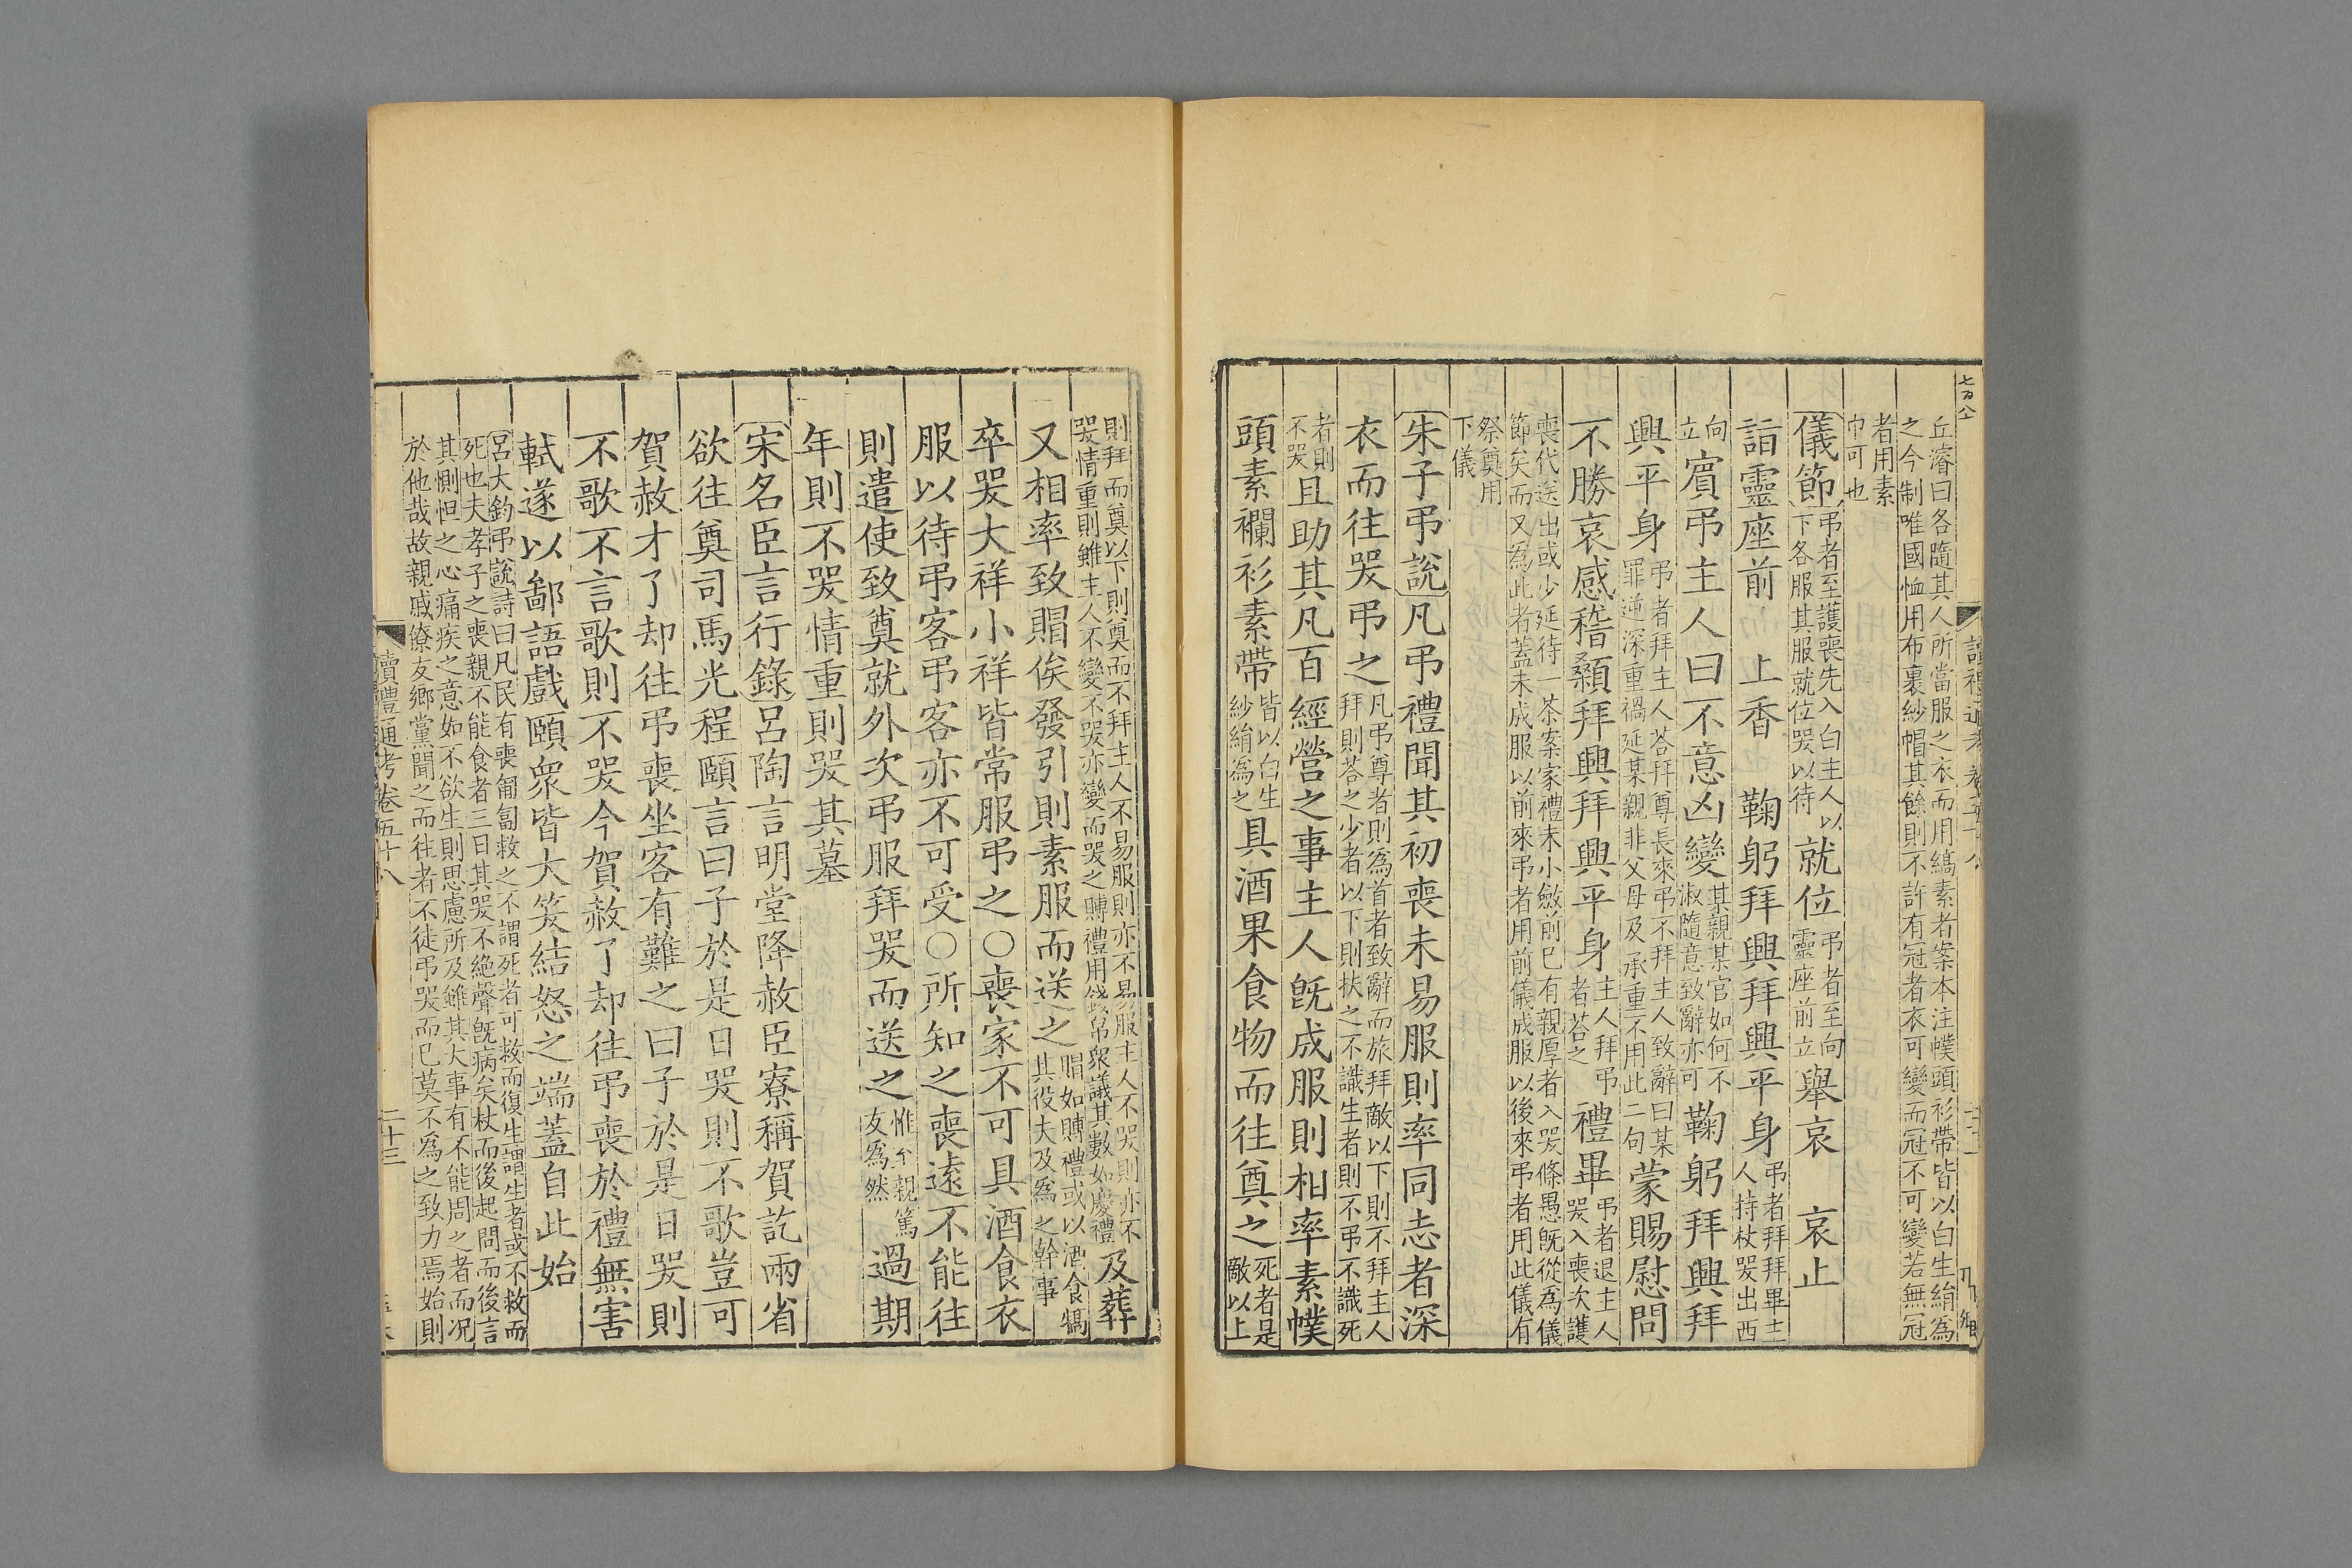 丘濬曰各隨其人所當服之衣而用縞素者案本注幞頭衫帶皆以白生絹為
之今制唯國恤用布裹紗帽其餘則不許有冠者衣可變而冠不可變若無冠
者用素
巾可也
儀節
弔者至護喪先入白主人以
下各服其服就位哭以待
就位
弔者至向
靈座前立
舉哀 哀止
詣靈座前 上香 鞠躬拜興拜興平身
弔者拜拜畢主
人持杖哭出西
向
立
賓弔主人曰不意凶變
其親某官如何不
淑隨意致辭亦可
鞠躬拜興拜
興平身
弔者拜主人荅拜尊長來弔不拜主人致辭曰某
罪逆深重禍延某親非父母及承重不用此二句
蒙賜慰問
不勝哀感稽顙拜興拜興平身
主人拜弔
者荅之
禮畢
弔者退主人
哭入喪次護
喪代送出或少延待一茶案家禮未小斂前已有親厚者入哭條愚旣從為儀
節矣而又為此者蓋未成服以前來弔者用前儀成服以後來弔者用此儀有
祭奠用
下儀
朱子弔說凡弔禮聞其初喪未易服則率同志者深
衣而往哭弔之
凡弔尊者則為首者致辭而旅拜敵以下則不拜主人
拜則荅之少者以下則扶之不識生者則不弔不識死
者則
不哭
且助其凡百經營之事主人旣成服則相率素幞
頭素襴衫素帶
皆以白生
紗絹為之
具酒果食物而往奠之
死者是
敵以上
則拜而奠以下則奠而不拜主人不易服則亦不易服主人不哭則亦不
哭情重則雖主人不變不哭亦變而哭之賻禮用錢帛衆議其數如慶禮
及葬
又相率致賵俟發引則素服而送之
賵如賻禮或以酒食犒
其役夫及為之幹事
卒哭大祥小祥皆常服弔之○喪家不可具酒食衣
服以待弔客弔客亦不可受○所知之喪遠不能往
則遣使致奠就外次弔服拜哭而送之
惟至親篤
友為然
過期
年則不哭情重則哭其墓
宋名臣言行錄呂陶言明堂降赦臣寮稱賀訖兩省
欲往奠司馬光程頤言曰子於是日哭則不歌豈可
賀赦才了却往弔喪坐客有難之曰子於是日哭則
不歌不言歌則不哭今賀赦了却往弔喪於禮無害
軾遂以鄙語戲頤衆皆大笑結怒之端蓋自此始
呂大鈞弔說詩曰凡民有喪匍匐救之不謂死者可救而復生謂生者或不救而
死也夫孝子之喪親不能食者三日其哭不絶聲旣病矣杖而後起問而後言
其惻怛之心痛疾之意如不欲生則思慮所及雖其大事有不能周之者而况
於他哉故親戚僚友鄉黨聞之而往者不徒弔哭而已莫不為之致力焉始則
讀禮通考卷五十八
二十三